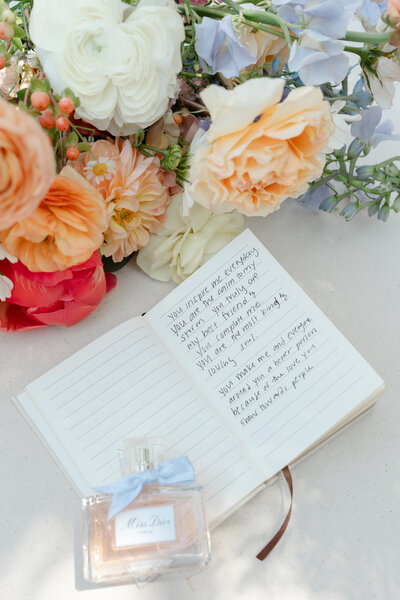 you inspire me everyday
you are the calm to my
storm you truly are
my best friend &
you complete me
you are the most kind &
loving soul.
you make me and everyone
around you a better person
because of the love you
show towards people
Miss Dior
PARFUM